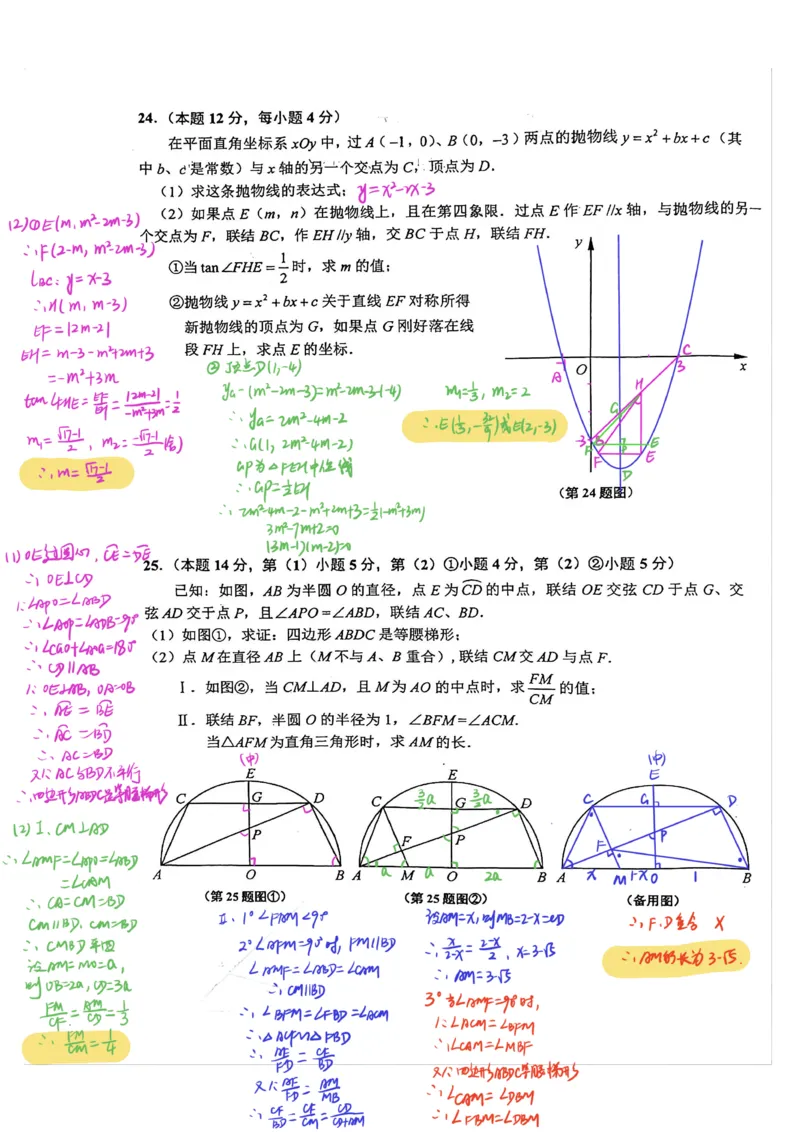 24. (本题 12 分，每小题 4 分)
在平面直角坐标系 xOy 中，过 A（-1，0）、B（0，-3）两点的抛物线 y = x² + bx + c（其
中 b、c 是常数）与 x 轴的另一个交点为 C，顶点为 D.
（1）求这条抛物线的表达式；
（2）如果点 E（m，n）在抛物线上，且在第四象限．过点 E 作 EF //x 轴，与抛物线的另一
个交点为 F，联结 BC，作 EH//y 轴，交 BC 于点 H，联结 FH.
①当 tan∠FHE = 1/2 时，求 m 的值；
②抛物线 y = x² + bx + c 关于直线 EF 对称所得
新抛物线的顶点为 G，如果点 G 刚好落在线
段 FH 上，求点 E 的坐标.
(2)①E(m, m²-2m-3)
∴F(2-m, m²-2m-3)
l_BC: y=x-3
∴H(m, m-3)
EF=|2m-2|
EH= m-3-m²+2m+3
=-m²+3m
∴m=(√17-1)/2
② 顶点D(1,-4)
y_G-(m²-2m-3)=m²-2m-3-(-4)
∴y_G=2m²-4m-2
∴G(1, 2m²-4m-2)
GP为△FEH中位线
∴GP=½EH
∴2m²-4m-2-m²+2m+3=½(-m²+3m)
3m²-7m+2=0
(3m-1)(m-2)=0
m₁=1/3, m₂=2
y
A
O
C
3
x
H
G
-3
B
P
E
F
E
D
（第 24 题图）
25. （本题 14 分，第（1）小题 5 分，第（2）①小题 4 分，第（2）②小题 5 分）
已知：如图，AB 为半圆 O 的直径，点 E 为 CD 的中点，联结 OE 交弦 CD 于点 G、交
弦 AD 交于点 P，且∠APO =∠ABD，联结 AC、BD.
（1）如图①，求证：四边形 ABDC 是等腰梯形；
（2）点 M 在直径 AB 上（M 不与 A、B 重合），联结 CM 交 AD 与点 F.
Ⅰ．如图②，当 CM⊥AD，且 M 为 AO 的中点时，求 FM/CM 的值；
Ⅱ．联结 BF，半圆 O 的半径为 1，∠BFM=∠ACM.
当△AFM 为直角三角形时，求 AM 的长.
∴OE⊥CD
∵∠APO=∠ABD
∴∠AOP=∠ADB=90°
∴CD∥AB
∵OE⊥AB, OA=OB
∴AE = BE
∴AC = BD
∴AC=BD
又∵AC与BD不平行
∴四边形ABDC是等腰梯形
(中)
E
C G D
P
A O B
（第 25 题图①）
E
C 3/2a G 3/2a D
F P
A a M a O 2a B
（第 25 题图②）
(中)
E
C G D
F P
A x M 1-x O 1 B
（备用图）
(2) Ⅰ. CM⊥AD
∴∠AMF=∠APO=∠ABD
=∠CAM
∴CA=CM=BD
CM∥BD, CM=BD
∴CMBD平四
设AM=MO=a,
则OB=2a, CD=3a
FM/CF=AM/CD=1/3
∴FM/CM=1/4
Ⅱ. 1° ∠FAM<90°
2° ∠AFM=90°时, FM∥BD
∠AMF=∠ABD=∠CAM
∴CM∥BD
∴∠BFM=∠FBD=∠ACM
∴△ACF∽△FBD
∴AF/FD=CF/BD
又∵AF/FD=AM/MB
∴CF/BD=CF/CM=CD/(CD+AM)
设AM=x, 则MB=2-x=CD
∴x/(2-x)=(2-x)/2, x=3-√5
∴AM=3-√5
3° 当∠AMF=90°时,
∵∠ACM=∠BFM
∴∠CAM=∠MBF
又∵四边形ABDC等腰梯形
∴∠CAM=∠DBM
∴∠FBM=∠DBM
∴F、D重合 ×
∴AM的长为3-√5.